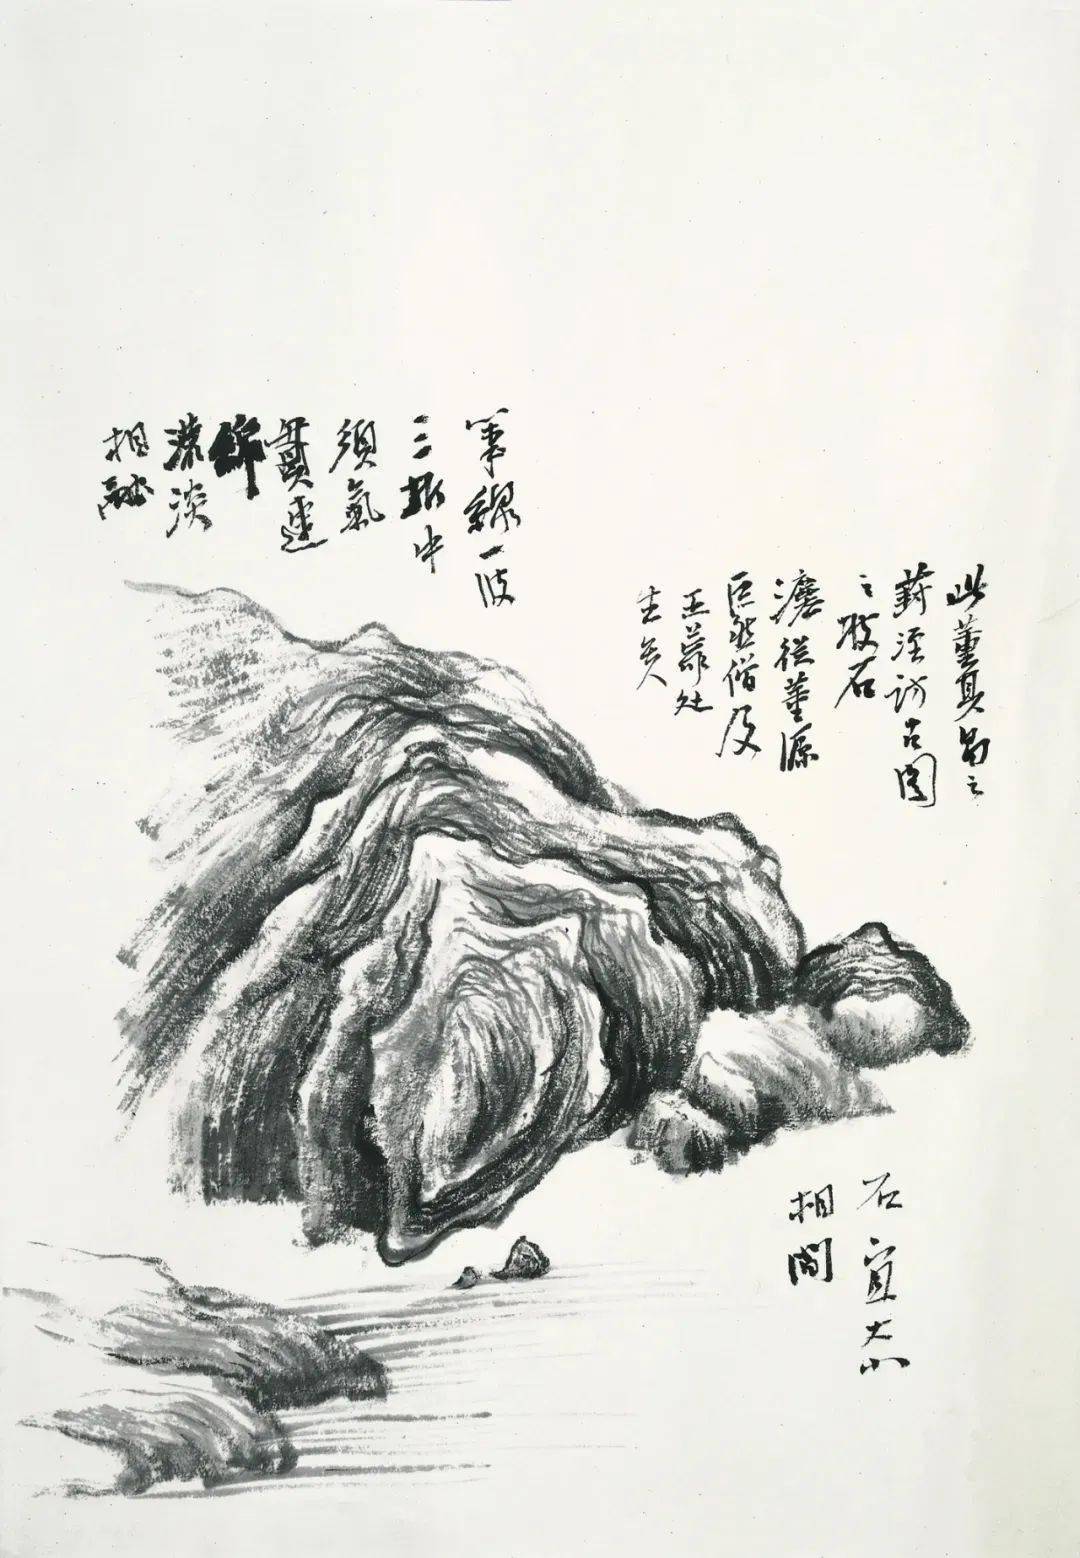 此董其昌之
葑涇訪古图
之坡石
灋從董源
巨然及
王蒙处
生
筆線一波
三折中
須氣
貫連
濃淡
相融
石宜大小
相間